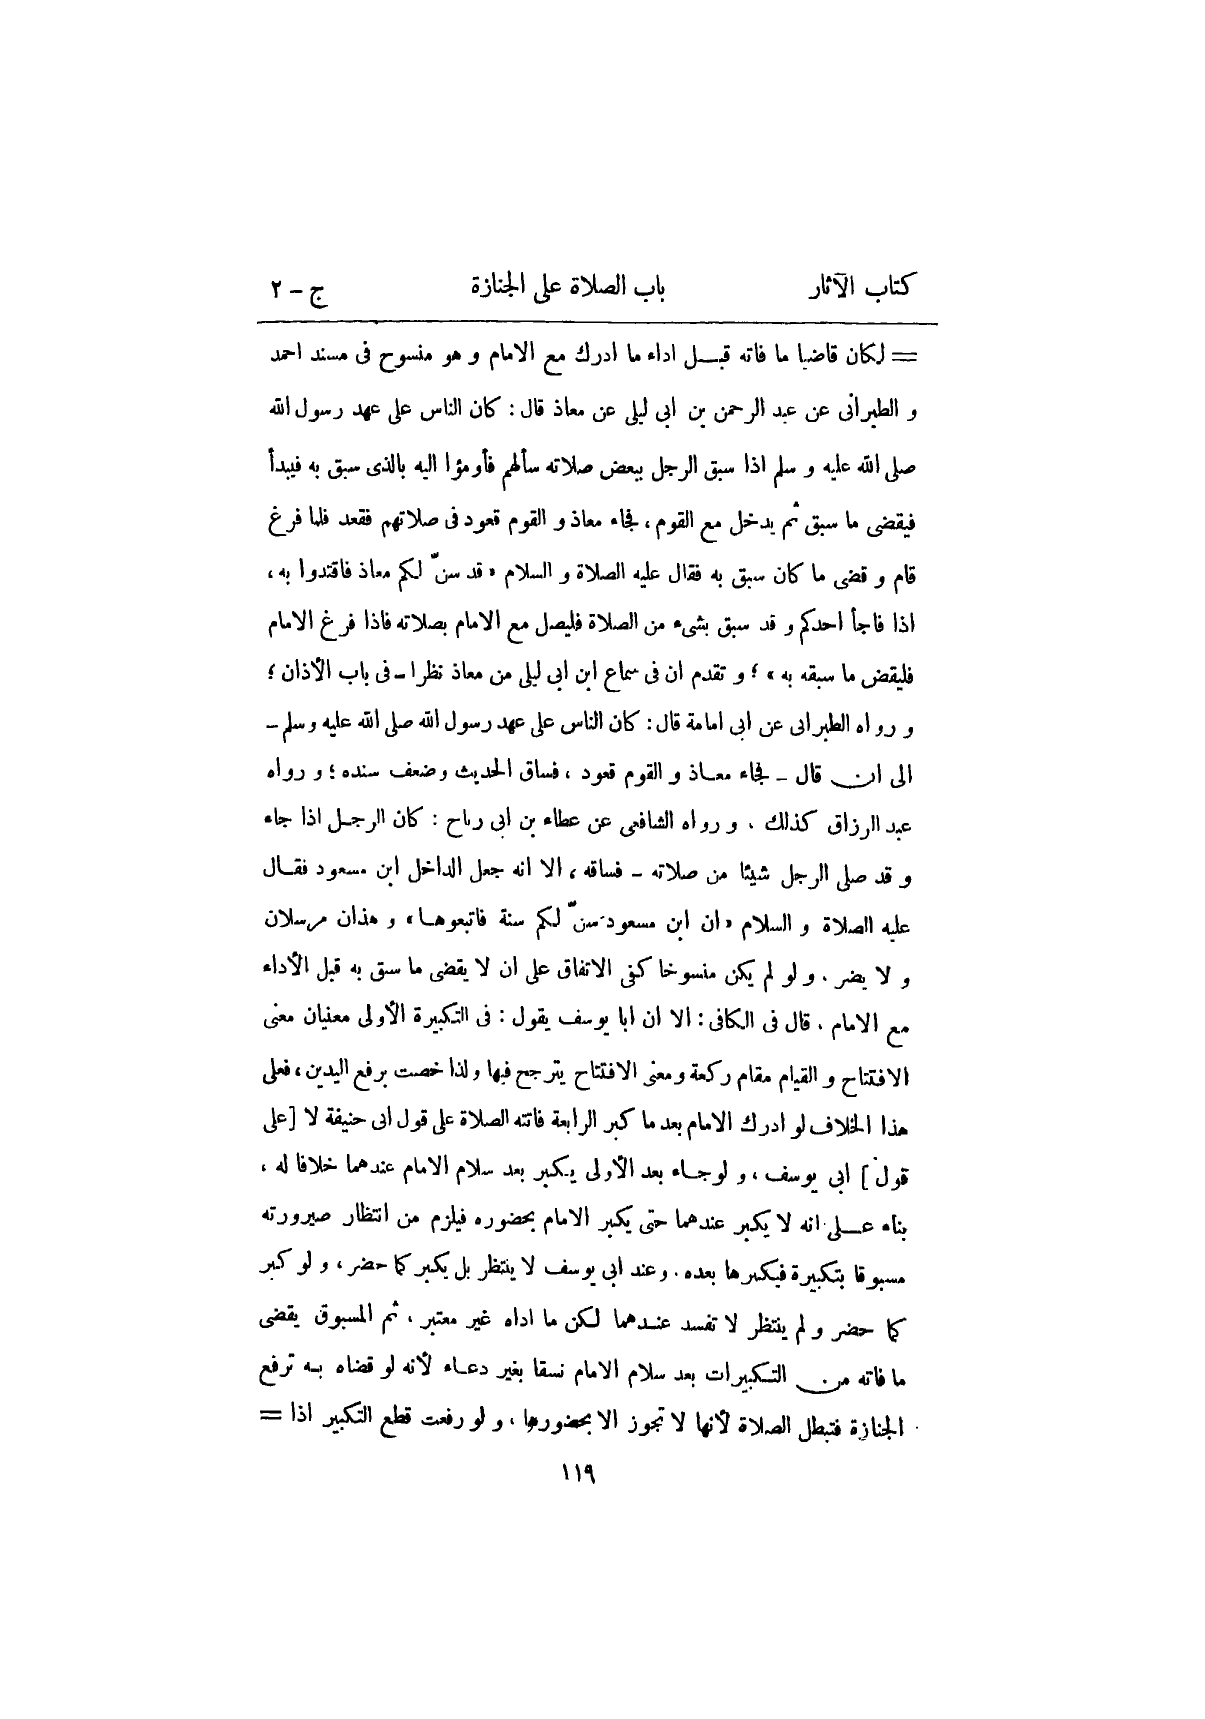 كتاب الآثار باب الصلاة على الجنازة ج - ٢
= لكان قاضيا ما فاته قبل اداء ما ادرك مع الامام و هو منسوخ فى مسند احمد
و الطبرانى عن عبد الرحمن بن ابى ليلى عن معاذ قال : كان الناس على عهد رسول الله
صلى الله عليه و سلم اذا سبق الرجل ببعض صلاته سألهم فأومؤا اليه بالذى سبق به فيبدأ
فيقضى ما سبق ثم يدخل مع القوم ، فجاء معاذ و القوم قعود فى صلاتهم فقعد فلما فرغ
قام و قضى ما كان سبق به فقال عليه الصلاة و السلام « قد سنّ لكم معاذ فاقتدوا به ،
اذا فاجأ احدكم و قد سبق بشىء من الصلاة فليصل مع الامام بصلاته فاذا فرغ الامام
فليقض ما سبقه به » ؛ و تقدم ان فى سماع ابن ابى ليلى من معاذ نظرا - فى باب الأذان ؛
و رواه الطبرانى عن ابى امامة قال : كان الناس على عهد رسول الله صلى الله عليه وسلم -
الى ان قال - فجاء معاذ و القوم قعود ، فساق الحديث وضعف سنده ؛ و رواه
عبد الرزاق كذلك . و رواه الشافعى عن عطاء بن ابى رباح : كان الرجل اذا جاء
و قد صلى الرجل شيئا من صلاته - فساقه ، الا انه جعل الداخل ابن مسعود فقال
عليه الصلاة و السلام « ان ابن مسعود سنّ لكم سنة فاتبعوها » و هذان مرسلان
و لا يضر . و لو لم يكن منسوخا كفى الاتفاق على ان لا يقضى ما سبق به قبل الأداء
مع الامام . قال فى الكافى : الا ان ابا يوسف يقول : فى التكبيرة الأولى معنيان معنى
الافتتاح و القيام مقام ركعة ومعنى الافتتاح يترجح فيها ولذا خصت برفع اليدين ، فعلى
هذا الخلاف لو ادرك الامام بعد ما كبر الرابعة فاتته الصلاة على قول ابى حنيفة لا [ على
قول ] ابى يوسف ، و لو جاء بعد الأولى يكبر بعد سلام الامام عندهما خلافا له ،
بناء على انه لا يكبر عندهما حتى يكبر الامام بحضوره فيلزم من انتظار صيرورته
مسبوقا بتكبيرة فيكبرها بعده . وعند ابى يوسف لا ينتظر بل يكبر كما حضر ، و لو كبر
كما حضر و لم ينتظر لا تفسد عندهما لكن ما اداه غير معتبر ، ثم المسبوق يقضى
ما فاته من التكبيرات بعد سلام الامام نسقا بغير دعاء لأنه لو قضاه به ترفع
الجنازة فتبطل الصلاة لأنها لا تجوز الا بحضورها ، و لو رفعت قطع التكبير اذا =
١١٩